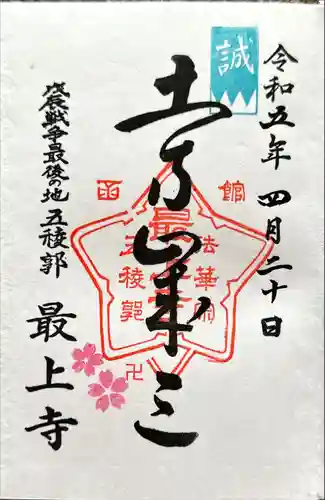 令和五年四月二十日
誠
土方歳三
函館
最上寺
法華宗
五稜郭
卍
戊辰戦争最後の地 五稜郭
最上寺